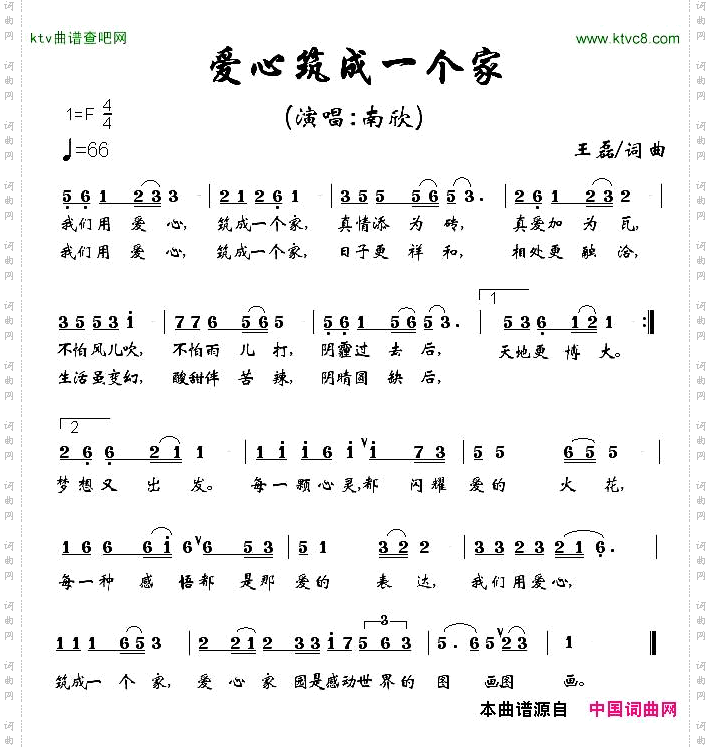 ktv曲谱查吧网
www.ktvc8.com
爱心筑成一个家
(演唱:南欣)
1=F 4/4
♩=66
王磊/词曲
5 6 1 2 3 3 | 2 1 2 6 1 | 3 5 5 5 6 5 3. | 2 6 1 2 3 2 |
我们用 爱 心, 筑成一个家, 真情添 为 砖, 真爱加 为 瓦,
我们用 爱 心, 筑成一个家, 日子更 祥 和, 相处更 融 洽,
3 5 5 3 i | 7 7 6 5 6 5 | 5 6 1 5 6 5 3. | 1 5 3 6 1 2 1 :||
不怕风儿吹, 不怕雨 儿 打, 阴霾过 去 后, 天地更 博 大。
生活虽变幻, 酸甜伴 苦 辣, 阴晴圆 缺 后,
2
2 6 6 2 1 1 | 1 i i 6 i v i 7 3 | 5 5 6 5 5 |
梦想又 出 发。 每一颗心灵,都 闪耀 爱的 火 花,
1 6 6 6 i 6 v 6 5 3 | 5 1 3 2 2 | 3 3 2 3 2 1 2 1 6. |
每一种 感 悟都 是那 爱的 表 达, 我们用爱心,
1 1 1 6 5 3 | 2 2 1 2 3 3 i 7 5 6 3 | 5. 6 5 v 2 3 1 ||
筑成一 个 家, 爱 心 家 园是感动世界的 图 画图 画。
本曲谱源自 中国词曲网
词曲网